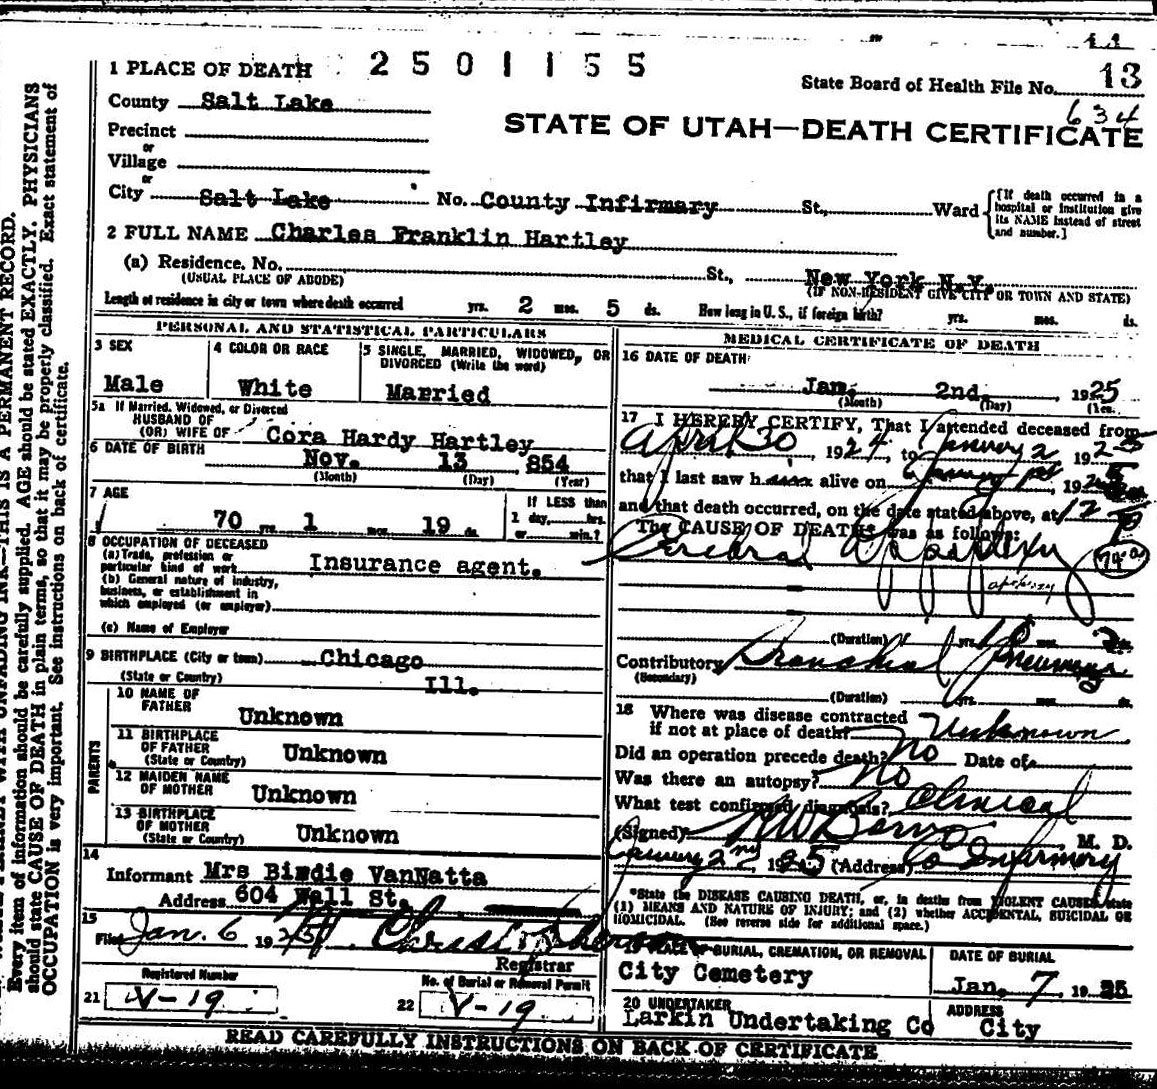 2501155
1 PLACE OF DEATH
State Board of Health File No. 13
County Salt Lake
634
STATE OF UTAH—DEATH CERTIFICATE
Precinct
or
Village
or
City Salt Lake No. County Infirmary St., Ward {[If death occurred in a hospital or institution give its NAME instead of street and number.]
2 FULL NAME Charles Franklin Hartley
(a) Residence. No. St., New York N.Y.
(USUAL PLACE OF ABODE) (IF NON-RESIDENT GIVE CITY OR TOWN AND STATE)
Length of residence in city or town where death occurred yrs. 2 mos. 5 ds. How long in U. S., if foreign birth? yrs. mos. ds.
PERSONAL AND STATISTICAL PARTICULARS
3 SEX
Male
4 COLOR OR RACE
White
5 SINGLE, MARRIED, WIDOWED, OR
DIVORCED (Write the word)
Married
5a If Married, Widowed, or Divorced
HUSBAND OF
(OR) WIFE OF Cora Hardy Hartley
6 DATE OF BIRTH
Nov. 13 854
(Month) (Day) (Year)
7 AGE
70 yrs. 1 mos. 19 ds.
If LESS than
1 day, hrs.
or min.?
8 OCCUPATION OF DECEASED
(a) Trade, profession or
particular kind of work Insurance agent.
(b) General nature of industry,
business, or establishment in
which employed (or employer)
(c) Name of Employer
9 BIRTHPLACE (City or town) Chicago
(State or Country) Ill.
PARENTS
10 NAME OF
FATHER Unknown
11 BIRTHPLACE
OF FATHER
(State or Country) Unknown
12 MAIDEN NAME
OF MOTHER Unknown
13 BIRTHPLACE
OF MOTHER
(State or Country) Unknown
14
Informant Mrs Birdie VanNatta
Address 604 Wall St.
15
Filed Jan. 6 1925
Registrar
Registered Number
21 V-19
No. of Burial or Removal Permit
22 V-19
MEDICAL CERTIFICATE OF DEATH
16 DATE OF DEATH
Jan. 2nd. 1925
(Month) (Day) (Year)
17 I HEREBY CERTIFY, That I attended deceased from
April 30, 1924, to January 2 1925
that I last saw h alive on January 1st, 192
and that death occurred, on the date stated above, at 12
The CAUSE OF DEATH* was as follows:
Cerebral Apoplexy
74a
apoplexy
(Duration) yrs. mos. ds.
Contributory Bronchial Pneumonia
(Secondary)
(Duration) yrs. mos. ds.
18 Where was disease contracted
if not at place of death? Unknown
Did an operation precede death? No Date of
Was there an autopsy? No
What test confirmed diagnosis? Clinical
(Signed) M. D.
January 2nd 1925 (Address) Co Infirmary
*State the DISEASE CAUSING DEATH, or, in deaths from VIOLENT CAUSES, state
(1) MEANS AND NATURE OF INJURY; and (2) whether ACCIDENTAL, SUICIDAL OR
HOMICIDAL. (See reverse side for additional space.)
19 PLACE OF BURIAL, CREMATION, OR REMOVAL
City Cemetery
DATE OF BURIAL
Jan. 7 1925
20 UNDERTAKER
Larkin Undertaking Co
ADDRESS
City
READ CAREFULLY INSTRUCTIONS ON BACK OF CERTIFICATE
THIS IS A PERMANENT RECORD.
Every item of information should be carefully supplied. AGE should be stated EXACTLY. PHYSICIANS
should state CAUSE OF DEATH in plain terms, so that it may be properly classified. Exact statement of
OCCUPATION is very important. See instructions on back of certificate.